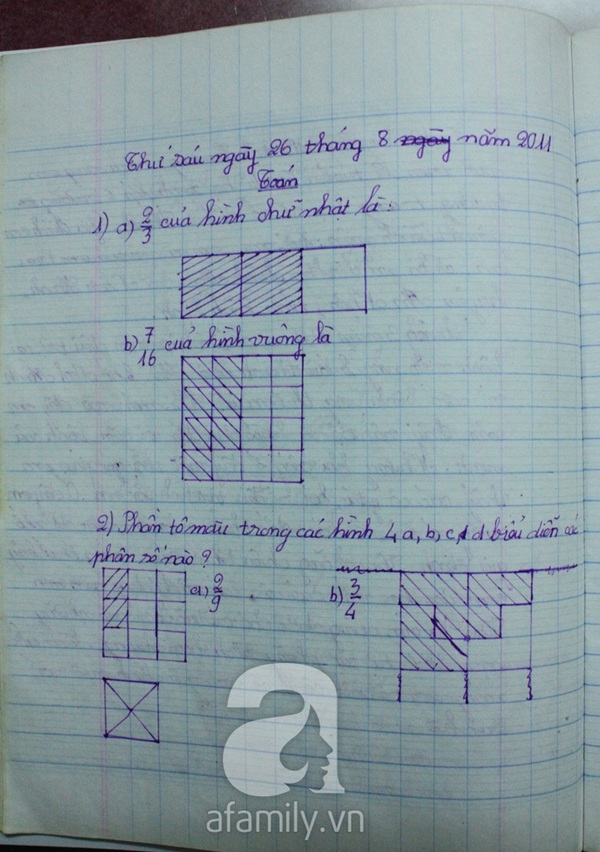 Thứ sáu ngày 26 tháng 8 ngày năm 2011
Toán
1) a) 2/3 của hình chữ nhật là:
b) 7/16 của hình vuông là
2) Phần tô màu trong các hình 4 a, b, c, d biểu diễn các
phân số nào?
a) 2/9 b) 3/4
a
afamily.vn